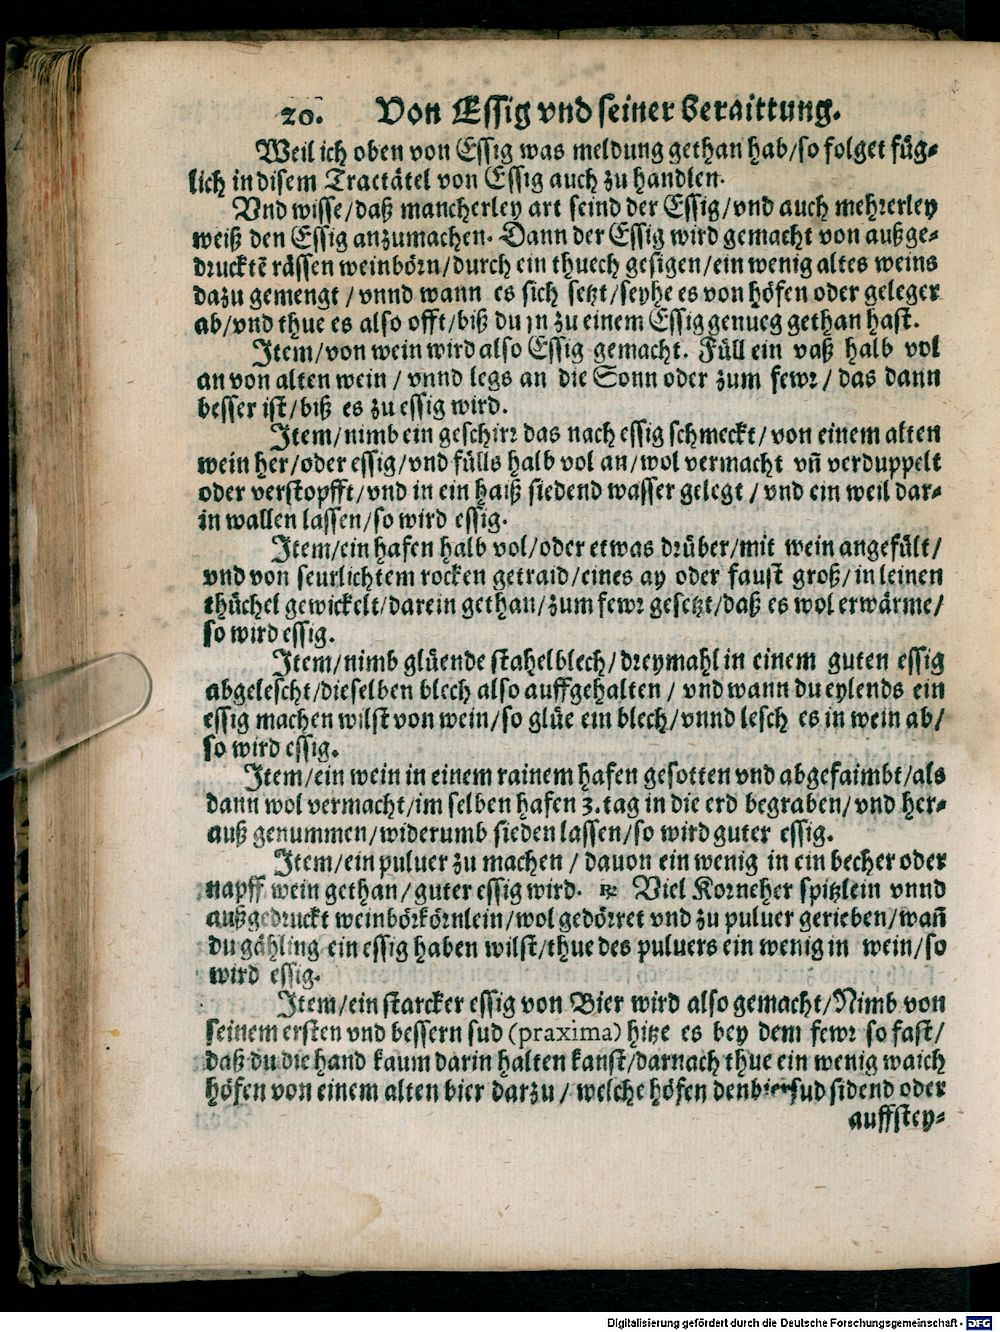 20. Von Essig vnd seiner beraittung.
Weil ich oben von Essig was meldung gethan hab/so folget füg-
lich in disem Tractätel von Essig auch zu handlen.
Vnd wisse/daß mancherley art seind der Essig/vnd auch mehrerley
weiß den Essig anzumachen. Dann der Essig wird gemacht von außge-
drucktẽ rässen weinbörn/durch ein thuech gesigen/ein wenig altes weins
dazu gemengt/vnnd wann es sich setzt/seyhe es von höfen oder geleger
ab/vnd thue es also offt/biß du jn zu einem Essig genueg gethan hast.
Item/von wein wird also Essig gemacht. Füll ein vaß halb vol
an von alten wein/vnnd legs an die Sonn oder zum fewr/das dann
besser ist/biß es zu essig wird.
Item/nimb ein geschirr das nach essig schmeckt/von einem alten
wein her/oder essig/vnd fülls halb vol an/wol vermacht vñ verduppelt
oder verstopfft/vnd in ein haiß siedend wasser gelegt/vnd ein weil dar-
in wallen lassen/so wird essig.
Item/ein hafen halb vol/oder etwas drüber/mit wein angefült/
vnd von seurlichtem rocken getraid/eines ay oder faust groß/in leinen
thüchel gewickelt/darein gethan/zum fewr gesetzt/daß es wol erwärme/
so wird essig.
Item/nimb glüende stahelblech/dreymahl in einem guten essig
abgelescht/dieselben blech also auffgehalten/vnd wann du eylends ein
essig machen wilst von wein/so glüe ein blech/vnnd lesch es in wein ab/
so wird essig.
Item/ein wein in einem rainem hafen gesotten vnd abgefaimbt/als
dann wol vermacht/im selben hafen 3. tag in die erd begraben/vnd her-
auß genummen/widerumb sieden lassen/so wird guter essig.
Item/ein puluer zu machen/dauon ein wenig in ein becher oder
napff wein gethan/guter essig wird. ℞ Viel Korneher spitzlein vnnd
außgedruckt weinbörkörnlein/wol gedörret vnd zu puluer gerieben/wañ
du gähling ein essig haben wilst/thue des puluers ein wenig in wein/so
wird essig.
Item/ein starcker essig von Bier wird also gemacht/Nimb von
seinem ersten vnd bessern sud (praxima) hitze es bey dem fewr so fast/
daß du die hand kaum darin halten kanst/darnach thue ein wenig waich
höfen von einem alten bier darzu/welche höfen den biersud sidend oder
auffstey-
Digitalisierung gefördert durch die Deutsche Forschungsgemeinschaft - DFG